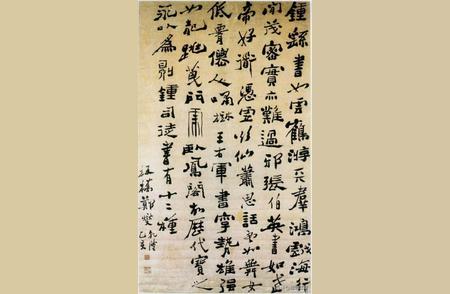 鍾繇書如雲鵠游天群鴻戲海行
間茂密實亦難過邪張伯英書如武
帝好衜憑虛欲仙蕭思話書如舞女
低腰僊人嘯樹王右軍書字勢雄強
如龍跳天門虎臥鳳閣故歷代寶之
永以為則鍾司徒書有十二種
板橋鄭燮
乾隆乙亥